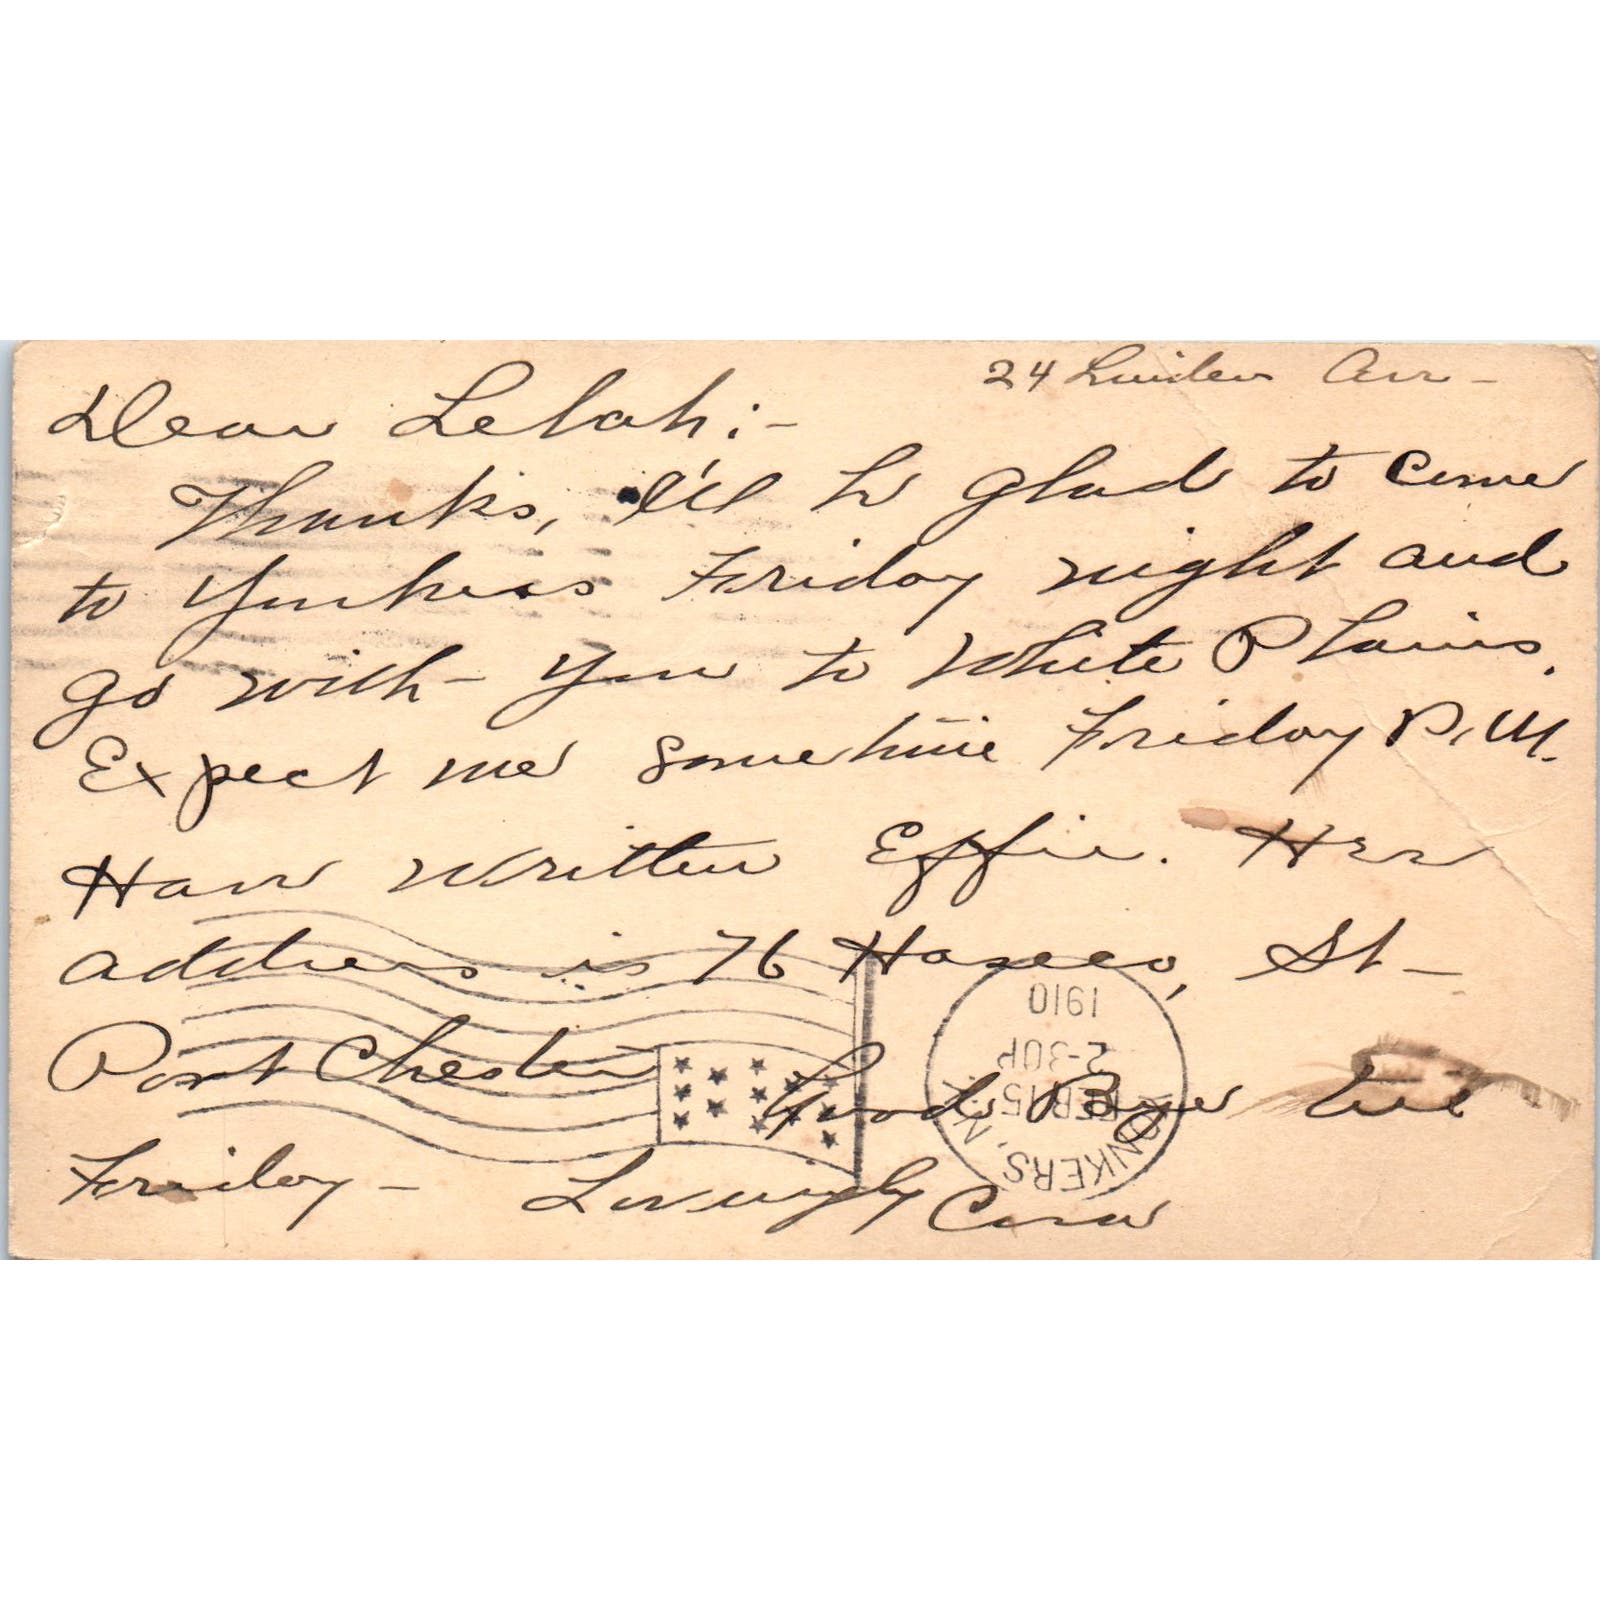 24 Linden Ave -
Dear Lelah:-
Thanks, I'll be glad to come
to Yonkers Friday night and
go with you to White Plains.
Expect me sometime Friday P.M.
Have written Effie. Her
address is 76 Haseco, St -
Port Chester
Good Bye till
Friday - Lovingly Cora
1910
2-30P
FEB 15
YONKERS, N.Y.